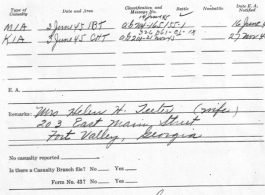 Type of Casualty Date and Area Classification and Message No. Battle Nonbattle Date E.A. Notified
MIA 2 June 45 IBT
KIA 2 June 45 CHT 27 Nov 4
E. A.
Remarks: Mrs Helen H. Teeter (wife)
203 East Main Street
Fort Valley, Georgia
No casualty reported
Is there a Casualty Branch file? No Yes
Form No. 43? No Yes